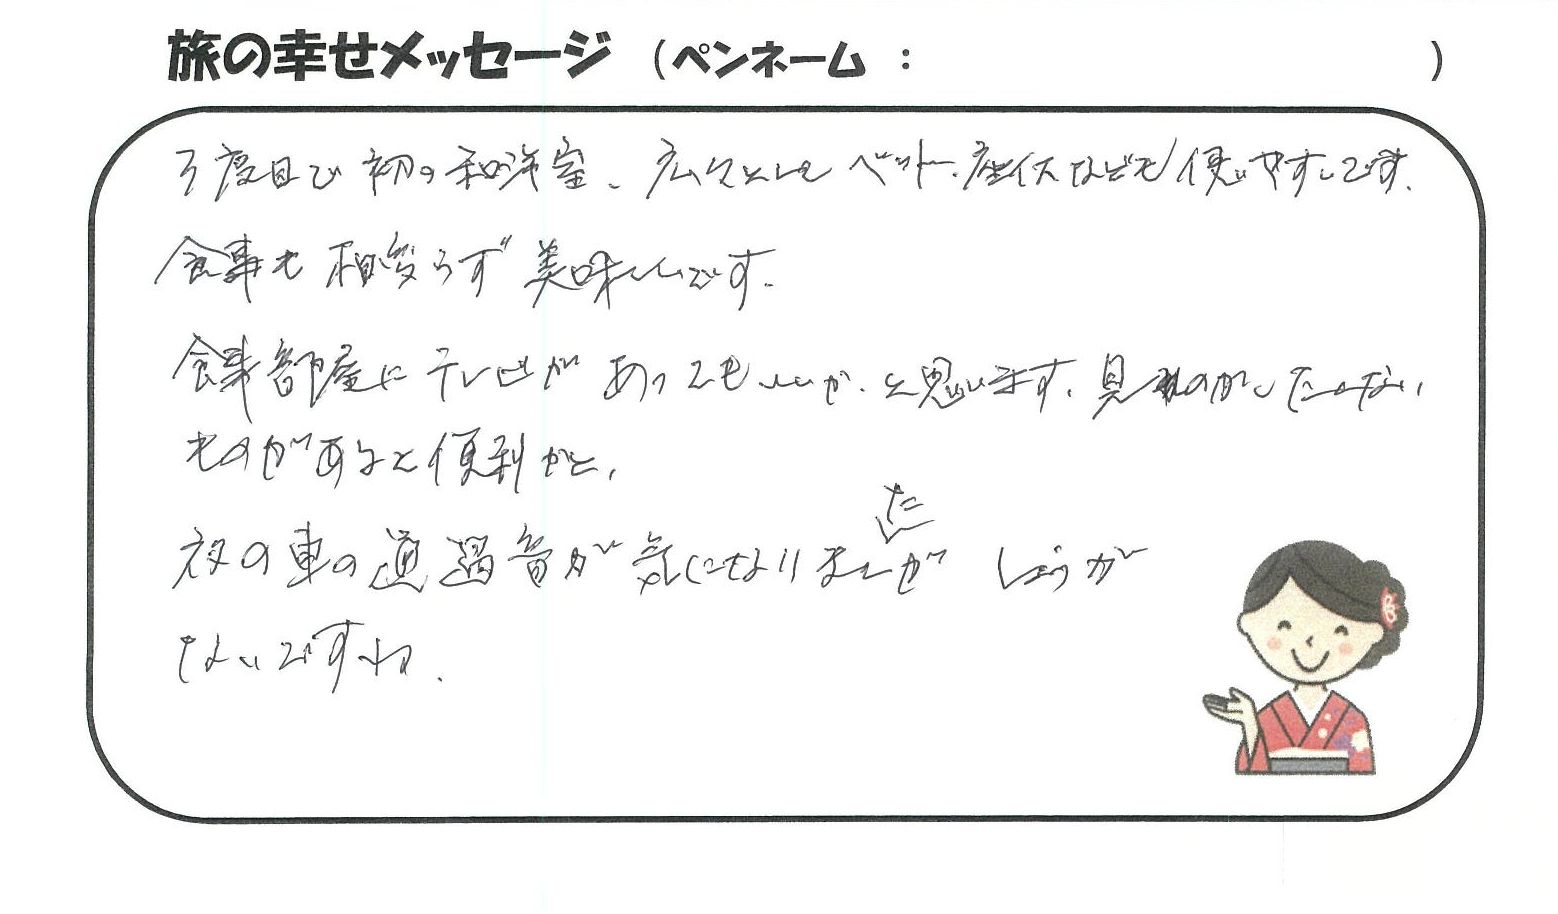 旅の幸せメッセージ (ペンネーム : )
3度目で初の和洋室、広々として ベット、座イスなども使いやすいです。
食事も相変らず美味しいです。
食事部屋にテレビがあってもいいか、と思います。見のがしたくない
ものがあると便利かと、
夜の車の通過音が気になりましたが しょうが
ないですね。